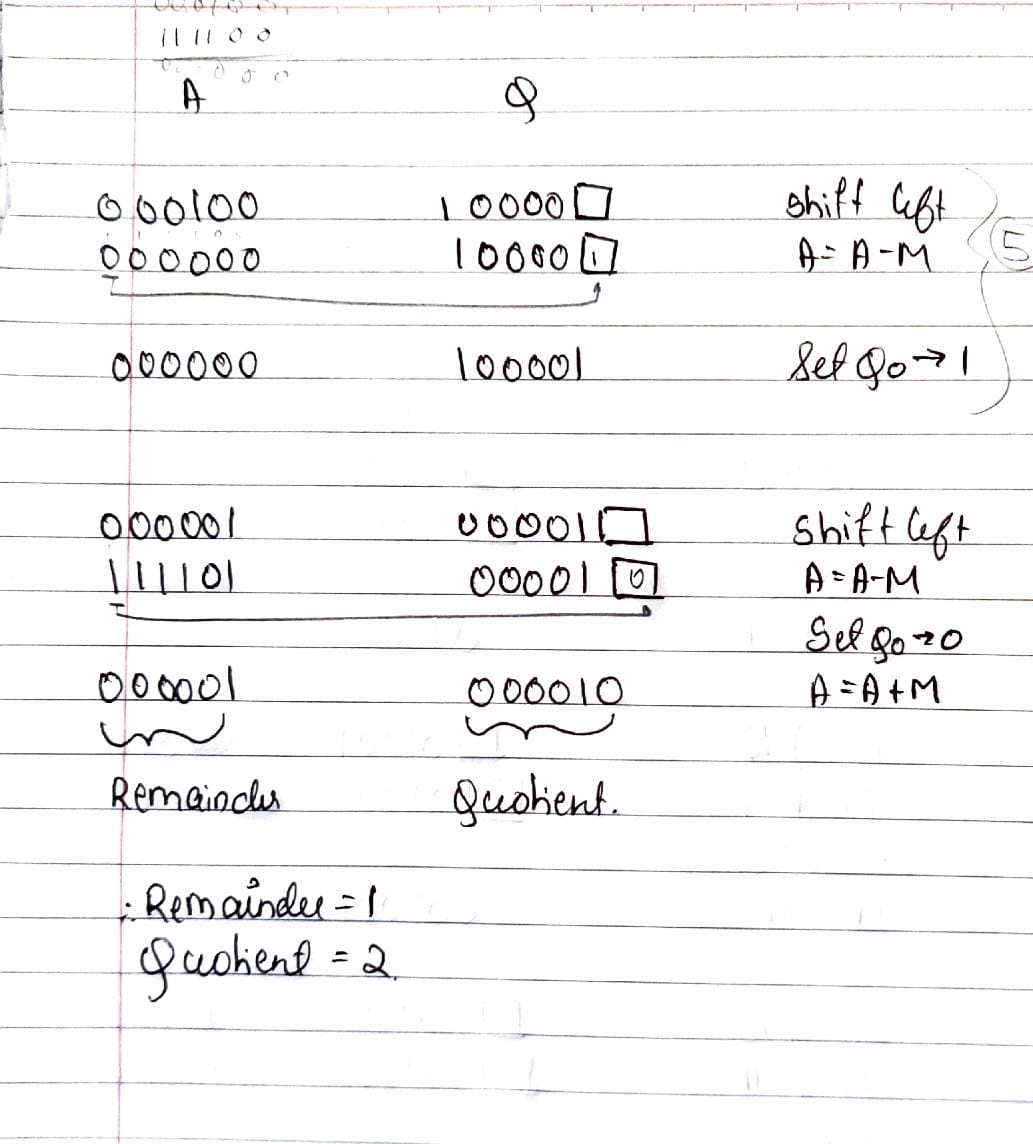 11 11 0 0
A Q
000100 10000□ Shift left
000000 10000[1] A = A-M
5
000000 100001 Set Q0→1
000001 00001□ Shift left
111101 00001[0] A = A-M
Set Q0→0
000001 000010 A = A+M
Remainder Quotient.
∴ Remainder = 1
Quotient = 2.